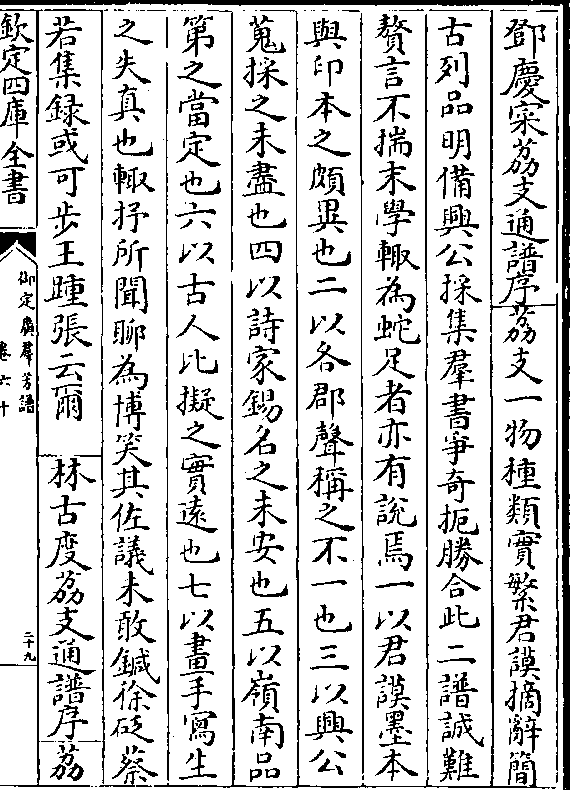 鄧慶宷荔支通譜序荔支一物種類實繁君謨摛辭簡
古列品明備興公採集羣書爭奇扼勝合此二譜誠難
贅言不揣末學輙為蛇足者亦有說焉一以君謨墨本
與印本之頗異也二以各郡聲稱之不一也三以興公
蒐採之未盡也四以詩家錫名之未安也五以嶺南品
第之當定也六以古人比擬之實遠也七以畫手寫生
之失真也輙抒所聞聊為博笑其佐議未敢鍼徐砭蔡
若集録或可步王踵張云爾 林古度荔支通譜序荔
欽定四庫全書
御定廣羣芳譜
卷六十
二十九